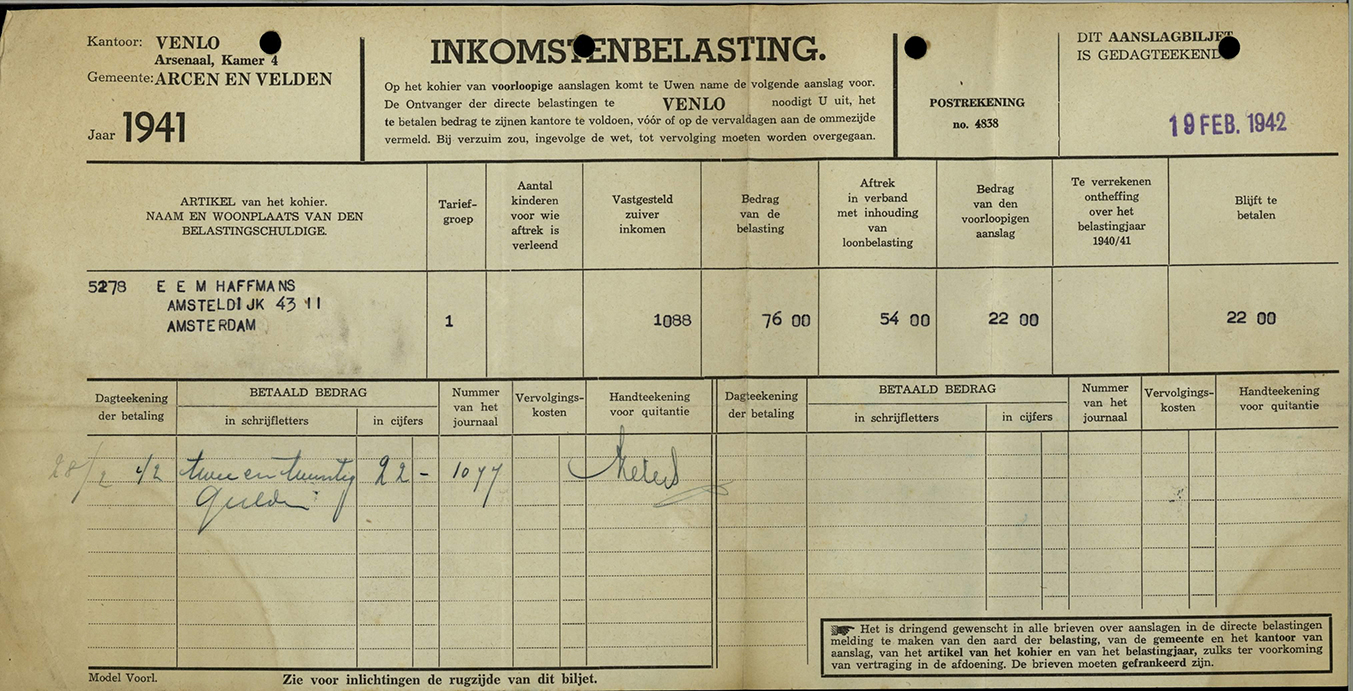 Kantoor: VENLO
Arsenaal, Kamer 4
Gemeente: ARCEN EN VELDEN
Jaar 1941
INKOMSTENBELASTING.
Op het kohier van voorloopige aanslagen komt te Uwen name de volgende aanslag voor.
De Ontvanger der directe belastingen te VENLO noodigt U uit, het
te betalen bedrag te zijnen kantore te voldoen, vóór of op de vervaldagen aan de ommezijde
vermeld. Bij verzuim zou, ingevolge de wet, tot vervolging moeten worden overgegaan.
POSTREKENING
no. 4838
DIT AANSLAGBILJET
IS GEDAGTEEKEND
19 FEB. 1942
ARTIKEL van het kohier.
NAAM EN WOONPLAATS VAN DEN
BELASTINGSCHULDIGE.
Tarief-
groep
Aantal
kinderen
voor wie
aftrek is
verleend
Vastgesteld
zuiver
inkomen
Bedrag
van de
belasting
Aftrek
in verband
met inhouding
van
loonbelasting
Bedrag
van den
voorloopigen
aanslag
Te verrekenen
ontheffing
over het
belastingjaar
1940/41
Blijft te
betalen
5278 E E M HAFFMANS
AMSTELDIJK 43 II
AMSTERDAM
1
1088
76 00
54 00
22 00
22 00
Dagteekening
der betaling
BETAALD BEDRAG
in schrijfletters
in cijfers
Nummer
van het
journaal
Vervolgings-
kosten
Handteekening
voor quitantie
Dagteekening
der betaling
BETAALD BEDRAG
in schrijfletters
in cijfers
Nummer
van het
journaal
Vervolgings-
kosten
Handteekening
voor quitantie
28/2 42 twee en twintig 22 - 1077
Gulden
Het is dringend gewenscht in alle brieven over aanslagen in de directe belastingen
melding te maken van den aard der belasting, van de gemeente en het kantoor van
aanslag, van het artikel van het kohier en van het belastingjaar, zulks ter voorkoming
van vertraging in de afdoening. De brieven moeten gefrankeerd zijn.
Model Voorl.
Zie voor inlichtingen de rugzijde van dit biljet.